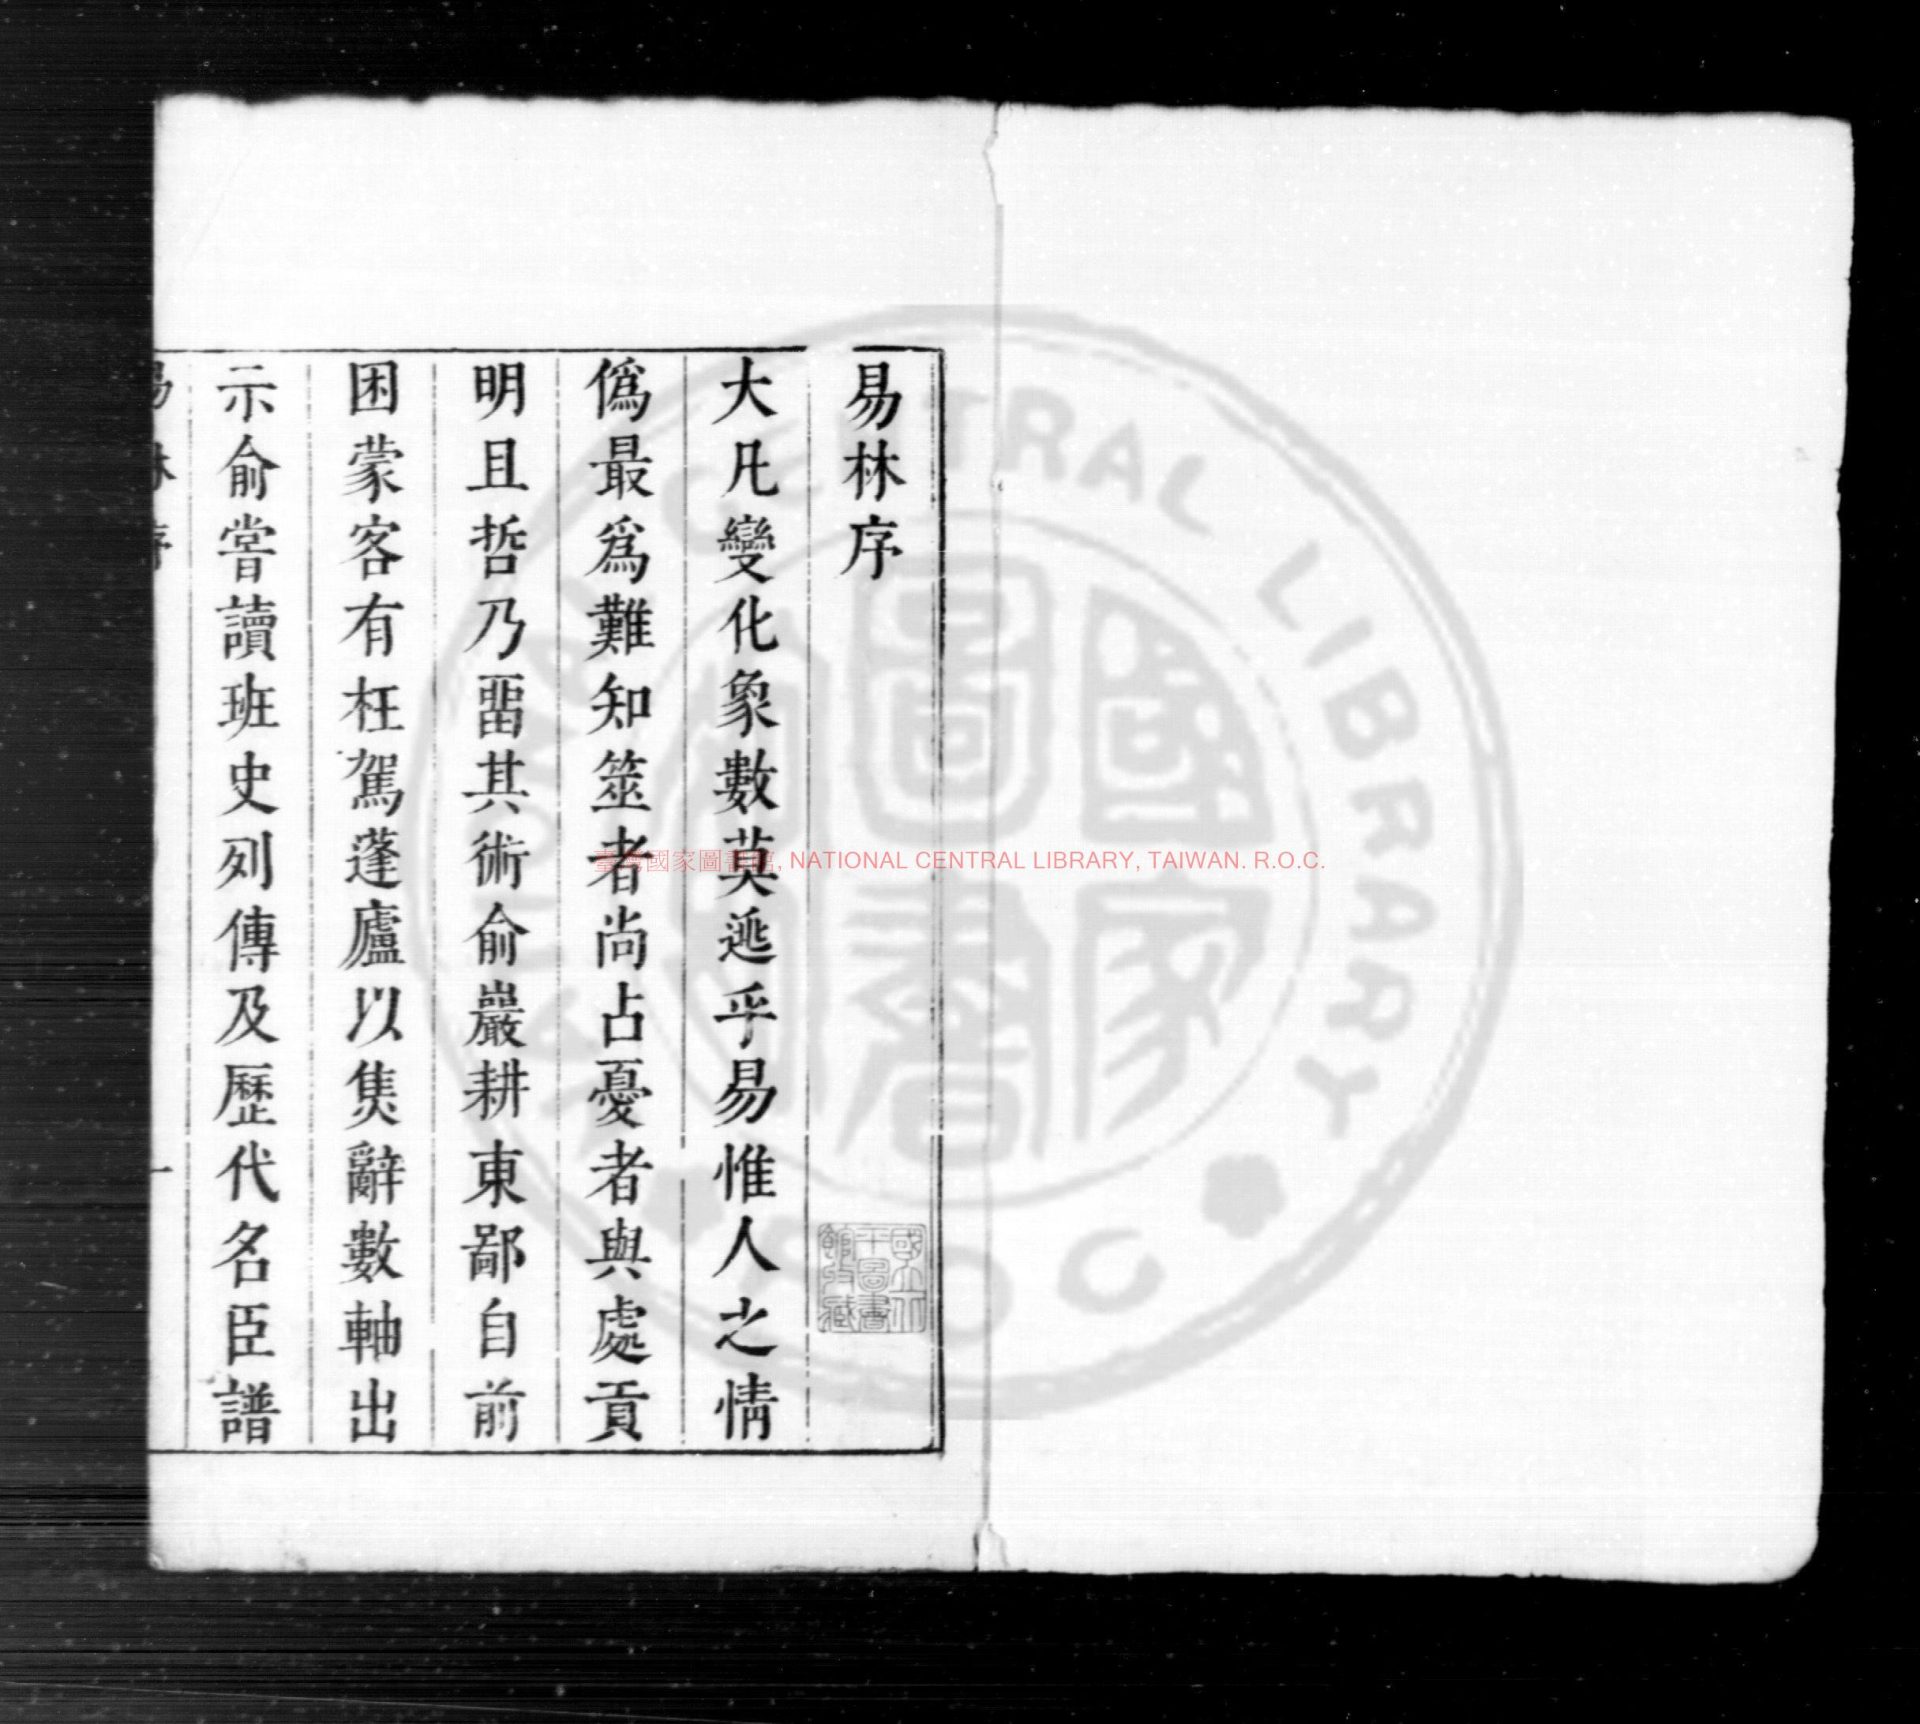 易林序
大凡變化象數莫逃乎易惟人之情
僞最爲難知筮者尚占憂者與處貢
明且哲乃畱其術俞巖耕東鄙自前
困蒙客有枉駕蓬廬以焦辭數軸出
示俞嘗讀班史列傳及歷代名臣譜
易林序
一
國立中央圖書館收藏
臺灣國家圖書館, NATIONAL CENTRAL LIBRARY, TAIWAN. R.O.C.
NATIONAL CENTRAL LIBRARY R.O.C.
國家圖書館